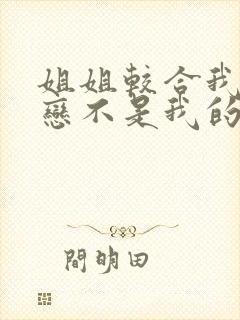 姐姐較合我
戀不是我的
間明田